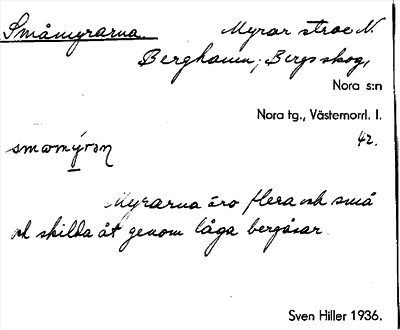 Småmyrarna Myrar strax N.
Berghamn, Bergs skog,
Nora s:n
Nora tg., Västernorrl. l.
42.
småmýrạn
Myrarna äro flera och små
och skilda åt genom låga bergåsar.
Sven Hiller 1936.